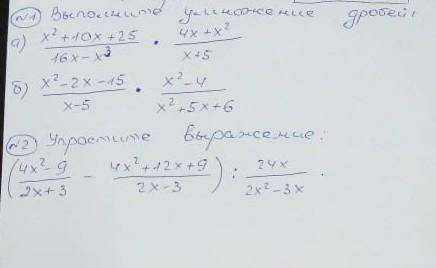 №1 Выполните умножение дробей:
а) (x² + 10x + 25)/(16x - x³) · (4x + x²)/(x + 5)
б) (x² - 2x - 15)/(x - 5) · (x² - 4)/(x² + 5x + 6)
№2 Упростите выражение:
((4x² - 9)/(2x + 3) - (4x² + 12x + 9)/(2x - 3)) : 24x/(2x² - 3x) .